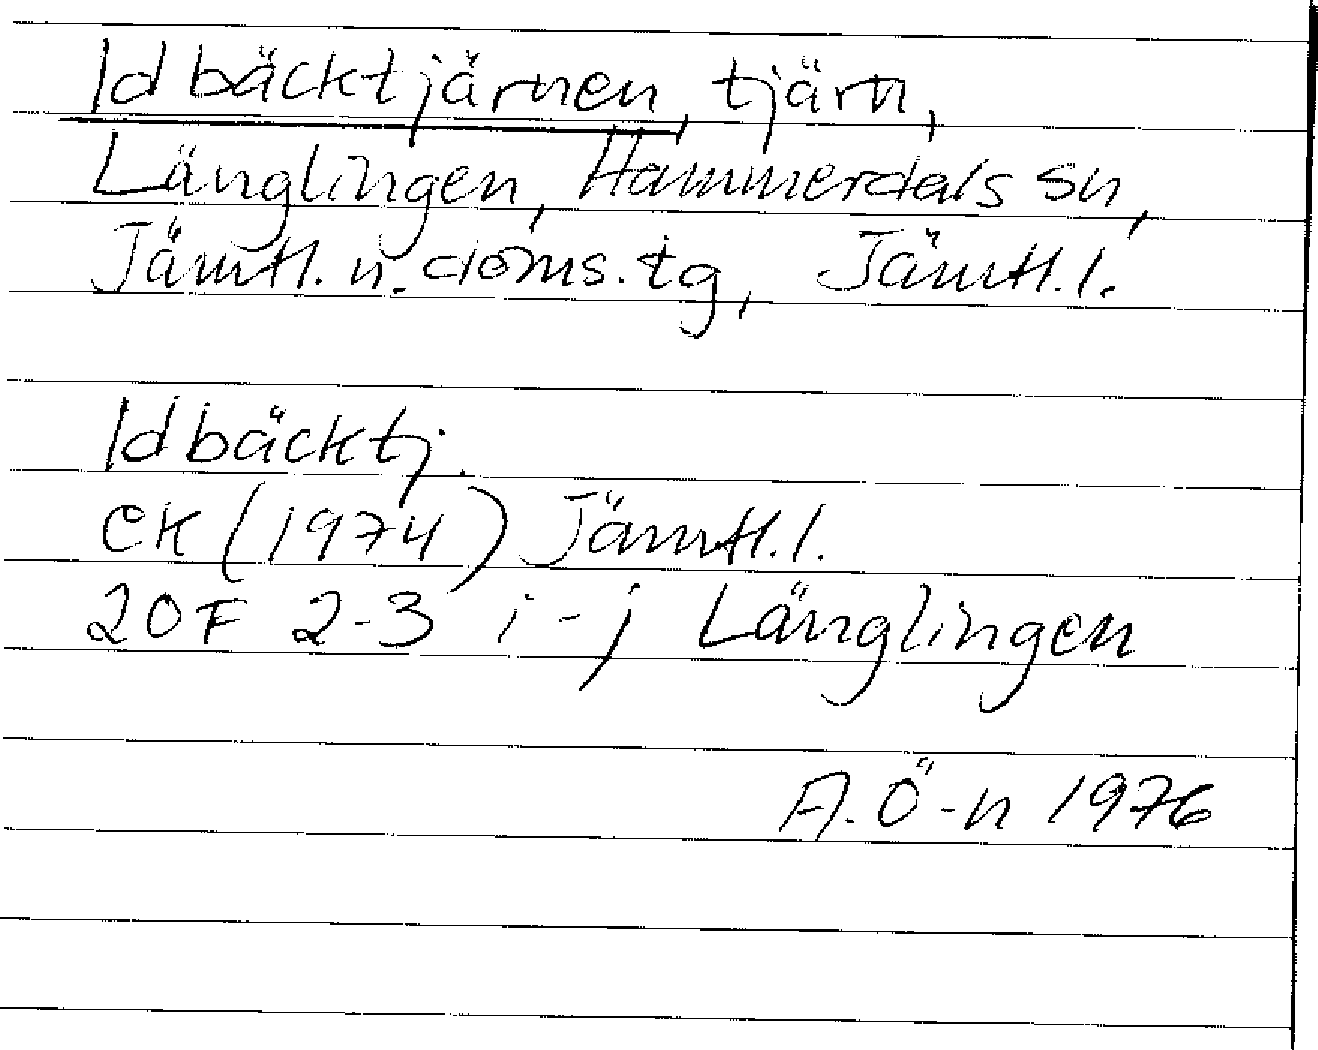 Idbäcktjärnen, tjärn,
Länglingen, Hammerdals sn,
Jämtl. n. doms. tg, Jämtl. l.
Idbäcktj.
EK (1974) Jämtl. l.
20F 2-3 i-j Länglingen
A. Ö-n 1976